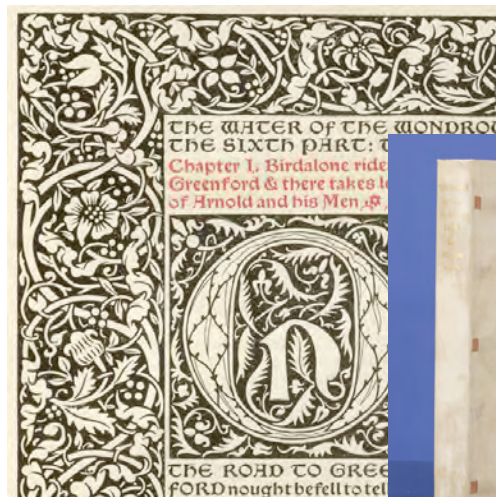 THE WATER OF THE WONDRO
THE SIXTH PART:
Chapter I. Birdalone ride
Greenford & there takes l
of Arnold and his Men
On
THE ROAD TO GREE
FORD nought befell to tel